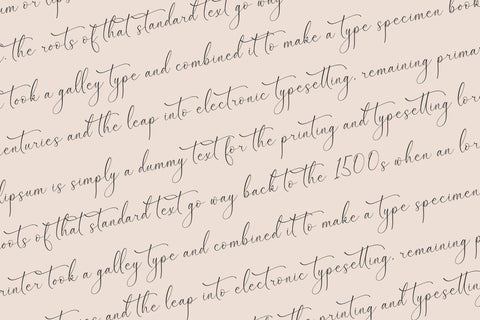 um or lips
. the roots of that standard text go way
took a galley type and combined it to make a type specimen book
centuries and the leap into electronic typesetting. remaining prima
lipsum is simply a dummy text for the printing and typesetting lor
roots of that standard text go way back to the 1500s when an lor
rinter took a galley type and combined it to make a type specimen
and the leap into electronic typesetting. remaining p
text for the printing and typesetting